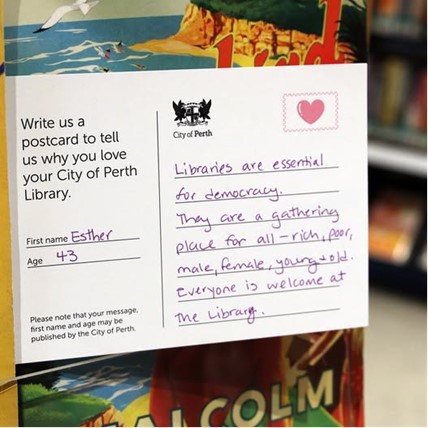 Write us a
postcard to tell
us why you love
your City of Perth
Library.
First name Esther
Age 43
Please note that your message,
first name and age may be
published by the City of Perth.
City of Perth
Libraries are essential
for democracy.
They are a gathering
place for all - rich, poor,
male, female, young + old.
Everyone is welcome at
The Library.